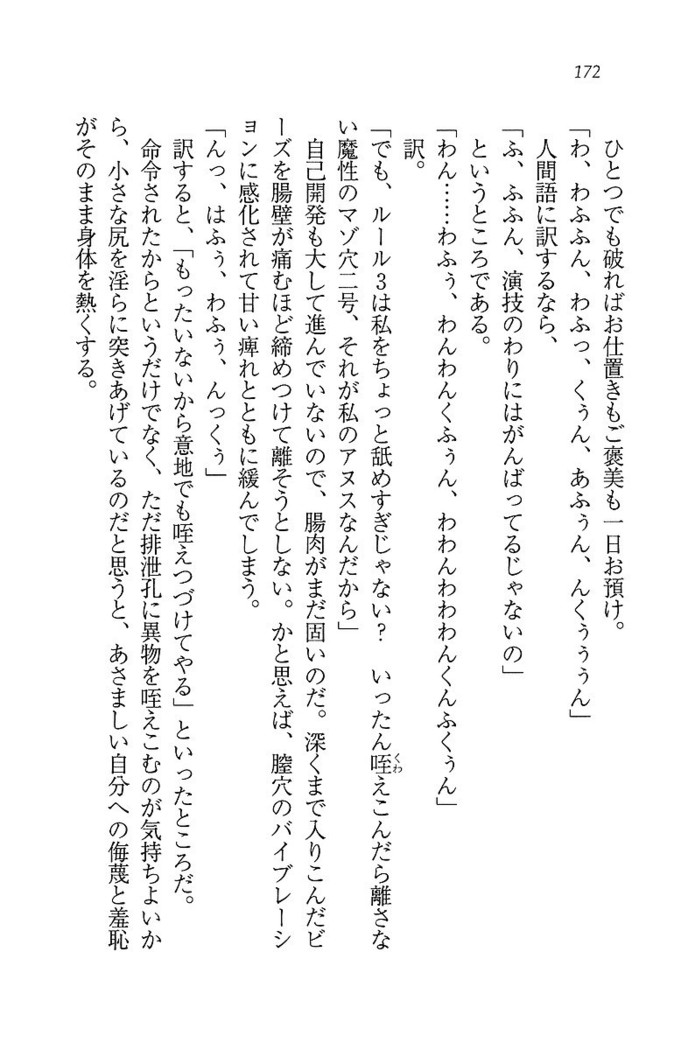 172
ひとつでも破ればお仕置きもご褒美も一日お預け。
「わ、わふふん、わふっ、くぅん、あふぅん、んくぅぅぅん」
人間語に訳するなら、
「ふ、ふふん、演技のわりにはがんばってるじゃないの」
というところである。
「わん……わふぅ、わんわんくふぅん、わわんわわわんくんふくぅん」
訳。
「でも、ルール3は私をちょっと舐めすぎじゃない？　いったん咥えこんだら離さな
い魔性のマゾ穴二号、それが私のアヌスなんだから」
自己開発も大して進んでいないので、腸肉がまだ固いのだ。深くまで入りこんだビ
ーズを腸壁が痛むほど締めつけて離そうとしない。かと思えば、膣穴のバイブレーシ
ョンに感化されて甘い痺れとともに緩んでしまう。
「んっ、はふぅ、わふぅ、んっくぅ」
訳すると、「もったいないから意地でも咥えつづけてやる」といったところだ。
命令されたからというだけでなく、ただ排泄孔に異物を咥えこむのが気持ちよいか
ら、小さな尻を淫らに突きあげているのだと思うと、あさましい自分への侮蔑と羞恥
がそのまま身体を熱くする。